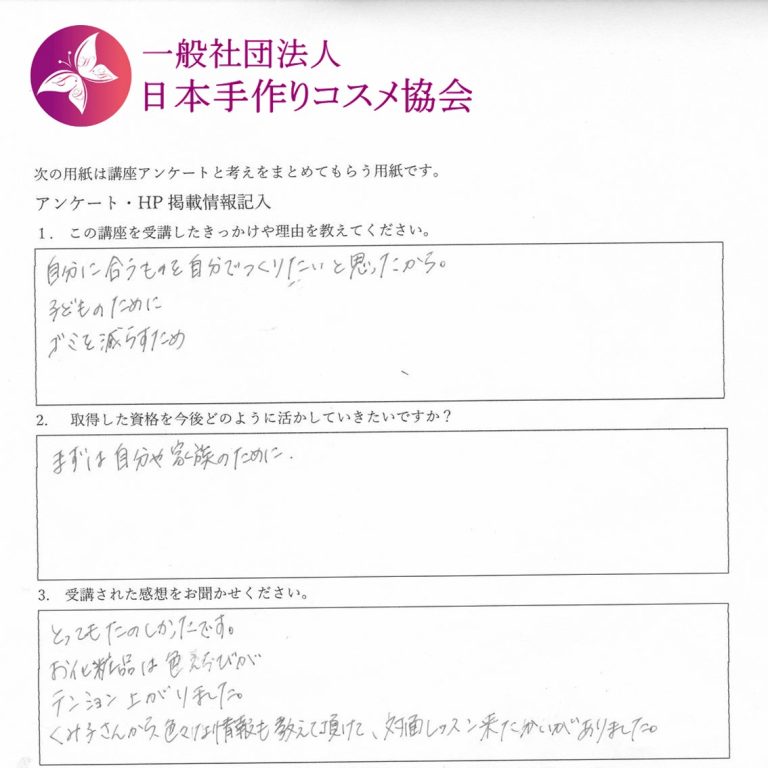 一般社団法人
日本手作りコスメ協会
次の用紙は講座アンケートと考えをまとめてもらう用紙です。
アンケート・HP 掲載情報記入
1. この講座を受講したきっかけや理由を教えてください。
自分に合うものを自分でつくりたいと思ったから。
子どものために
ゴミを減らすため
2. 取得した資格を今後どのように活かしていきたいですか？
まずは自分や家族のために.
3. 受講された感想をお聞かせください。
とってもたのしかったです。
お化粧品は色えらびが
テンション上がりました。
くみ子さんから色々な情報も教えて頂けて、対面レッスン来たかいがありました。